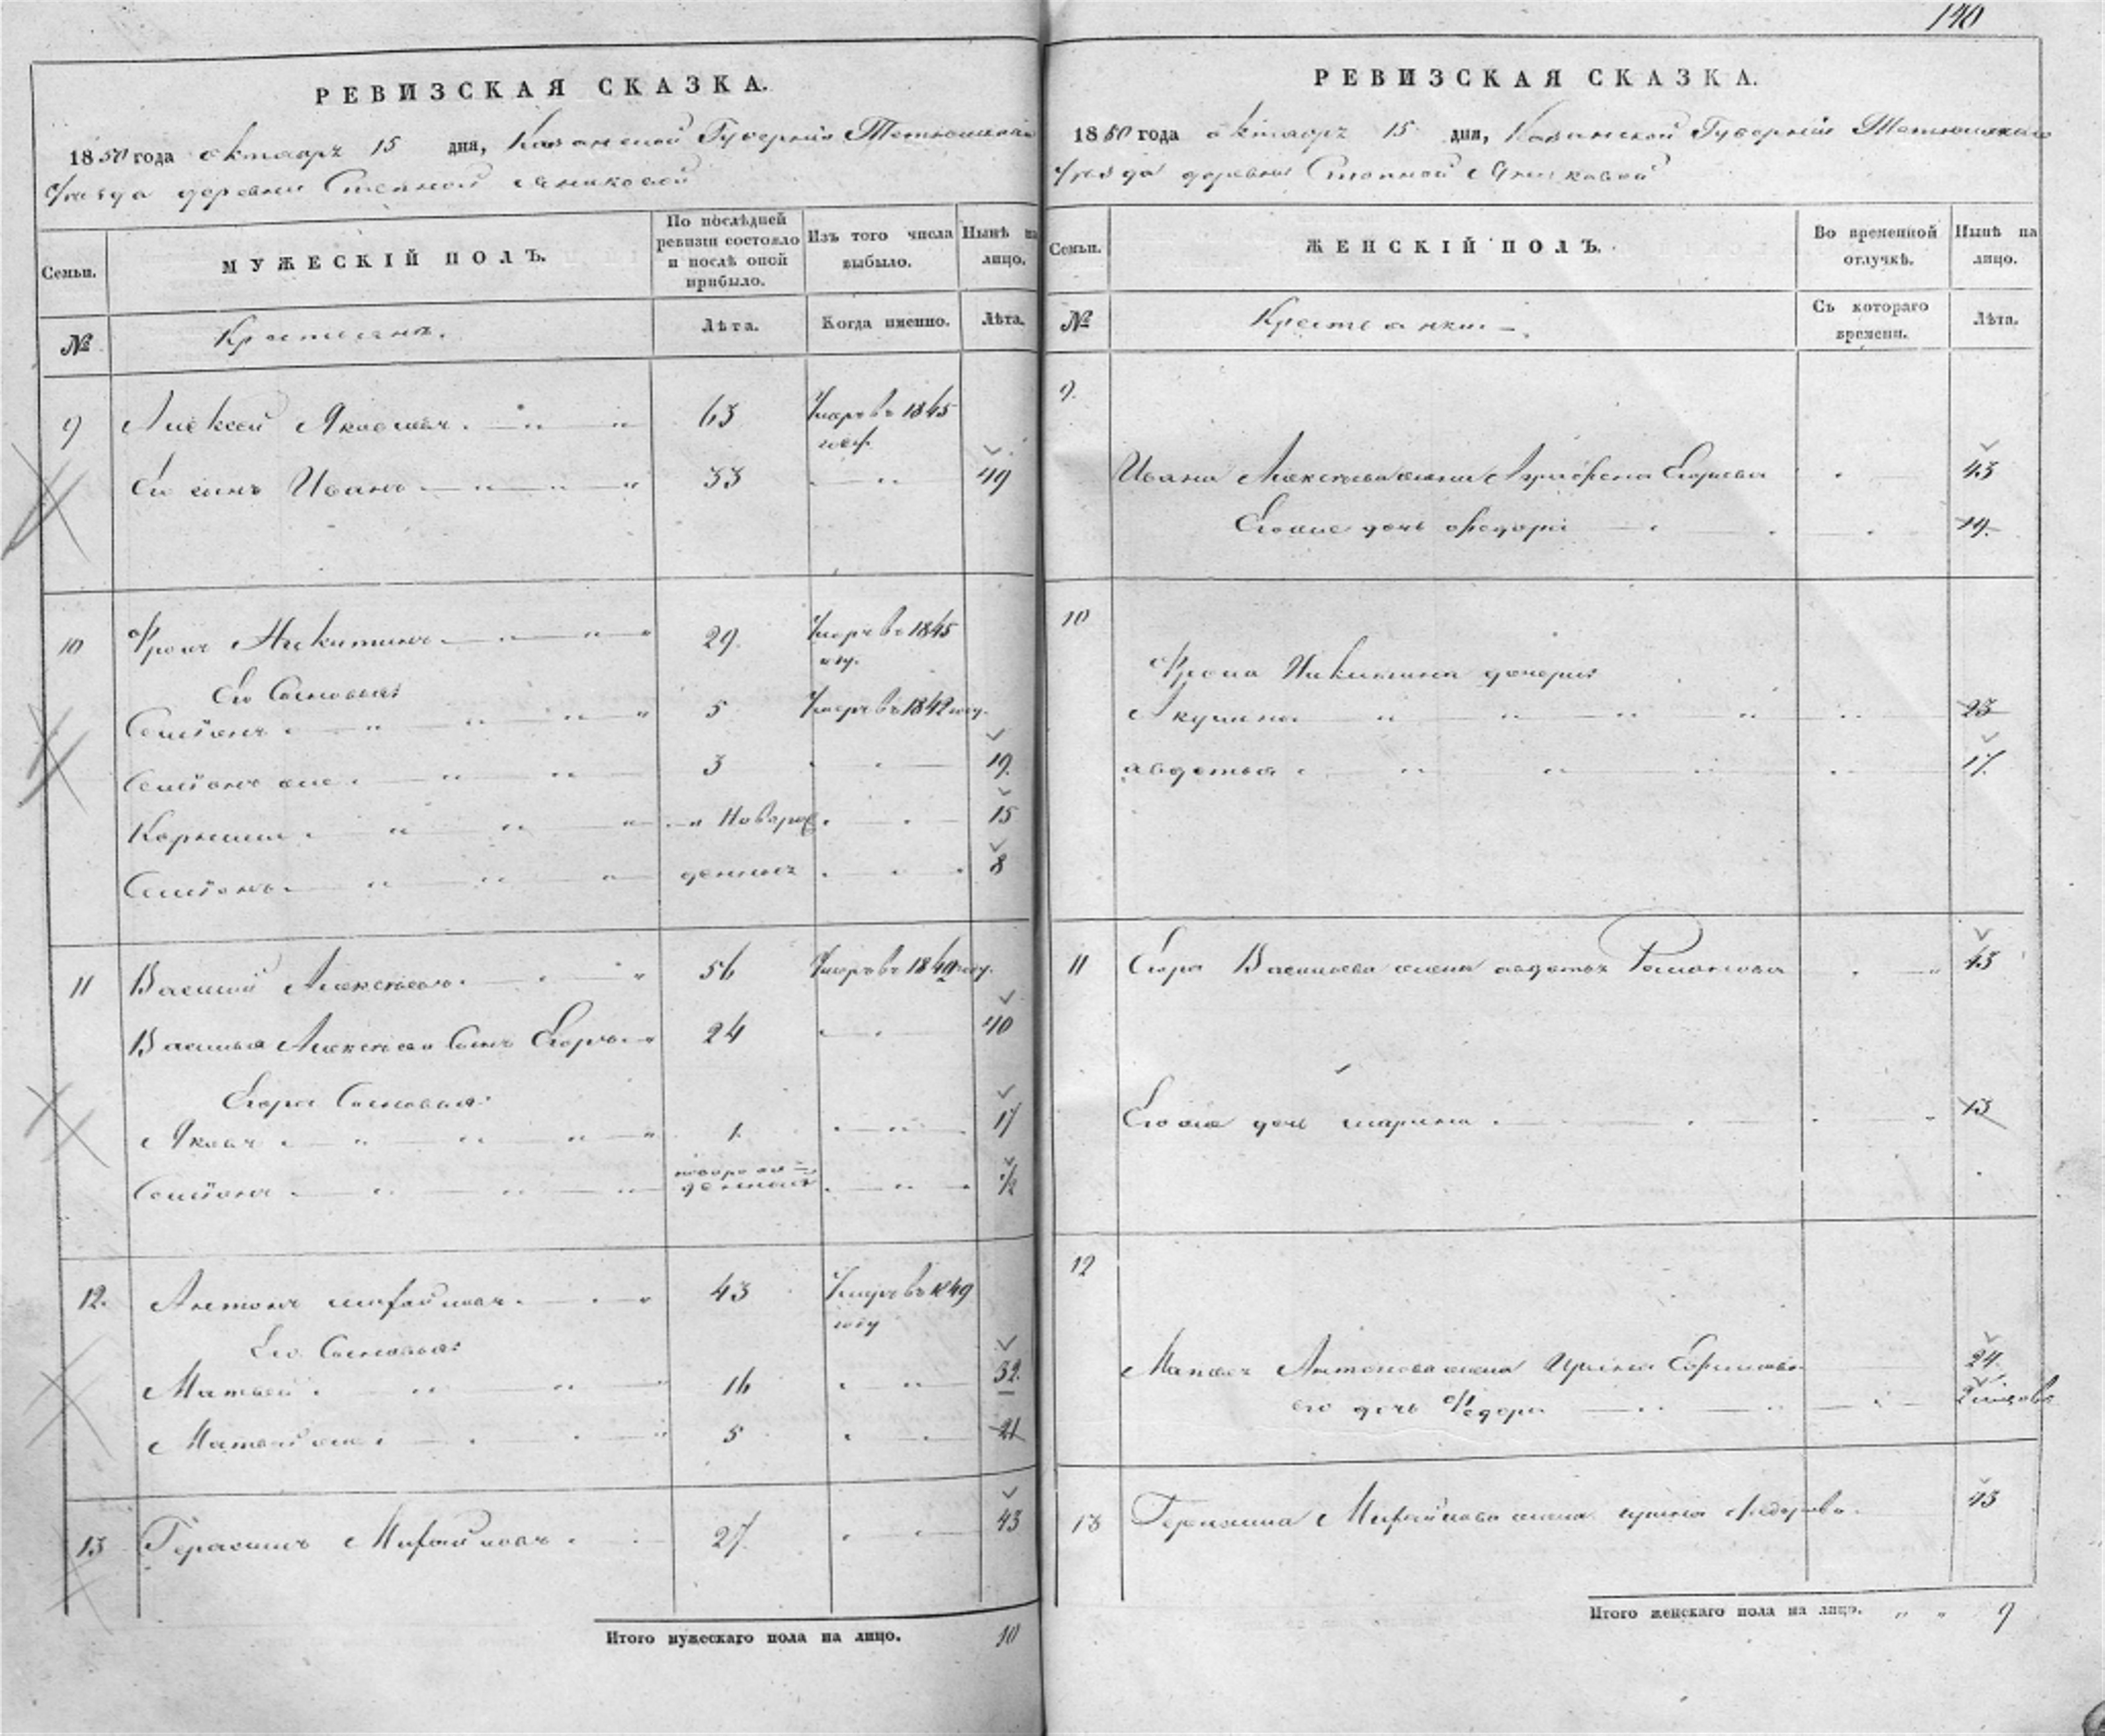 140
РЕВИЗСКАЯ СКАЗКА.
1850 года октябрь 15 дня, Казанской Губернии Тетюшскаго
Уезда деревни Степной Яниковой
Семьи.
МУЖЕСКІЙ ПОЛЪ.
По послѣдней ревизіи состояло и послѣ оной прибыло.
Изъ того числа выбыло.
Нынѣ на лицо.
№
Крестьяне.
Лѣта.
Когда именно.
Лѣта.
9 Алексей Яковлевъ 63 Умеръ въ 1845 году
Его сынъ Иванъ 33 49
10 Фролъ Никитинъ 29 Умеръ въ 1845 году
Его Сыновья:
Семіонъ 5 Умеръ въ 1842 году
Семіонъ же 3 19
Корнилій Новорож 15
Семіонъ денные 8
11 Василій Алексеевъ 56 Умеръ въ 1849 году
Василья Алексеева Сынъ Егоръ 24 40
Егора Сыновья:
Яковъ 1 17
Семіонъ новорожденный 1/2
12. Антонъ Михайловъ 43 Умеръ въ 1849 году
Его Сыновья:
Матвей 16 32
Матвей же 5 21
13 Герасимъ Михайловъ 27 43
Итого мужескаго пола на лицо. 10
РЕВИЗСКАЯ СКАЗКА.
1850 года октябрь 15 дня, Казанской Губерніи Тетюшскаго
Уезда деревни Степной Яниковой
Семьи.
ЖЕНСКІЙ ПОЛЪ.
Во временной отлучкѣ.
Нынѣ на лицо.
№
Крестьянки
Съ котораго времени.
Лѣта.
9.
Ивана Алексеева жена Аграфена Егорова 43
Его же дочь Федора 19
10
Фрола Никитина дочери:
Акулина 23
авдотья 17
11 Егора Васильева жена авдотья Романова 43
Его же дочь марина 13
12
Матвея Антонова жена Ирина Ефимова 24
его дочь Федора
13 Герасима Михайлова жена ирина Федорова 43
Итого женскаго пола на лицо. 9